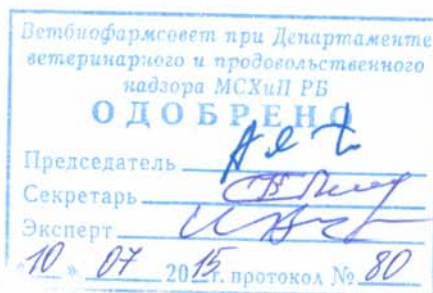 Ветбиофармсовет при Департаменте
ветеринарного и продовольственного
надзора МСХиП РБ
ОДОБРЕНО
Председатель
Секретарь
Эксперт
"10" 07 2015г. протокол № 80